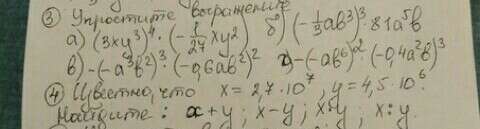 ③ Упростите выражение
а) (3xy³)⁴ · (-1/27 xy²) б) (-1/3 ab³)³ · 81a⁵b
в) -(-a³b²)³ · (-0,6ab²)² г) -(-ab⁶)² · (-0,4a²b)³
④ Известно, что x = 2,7·10⁷, y = 4,5·10⁶.
Найдите: x+y; x-y; x·y; x:y.